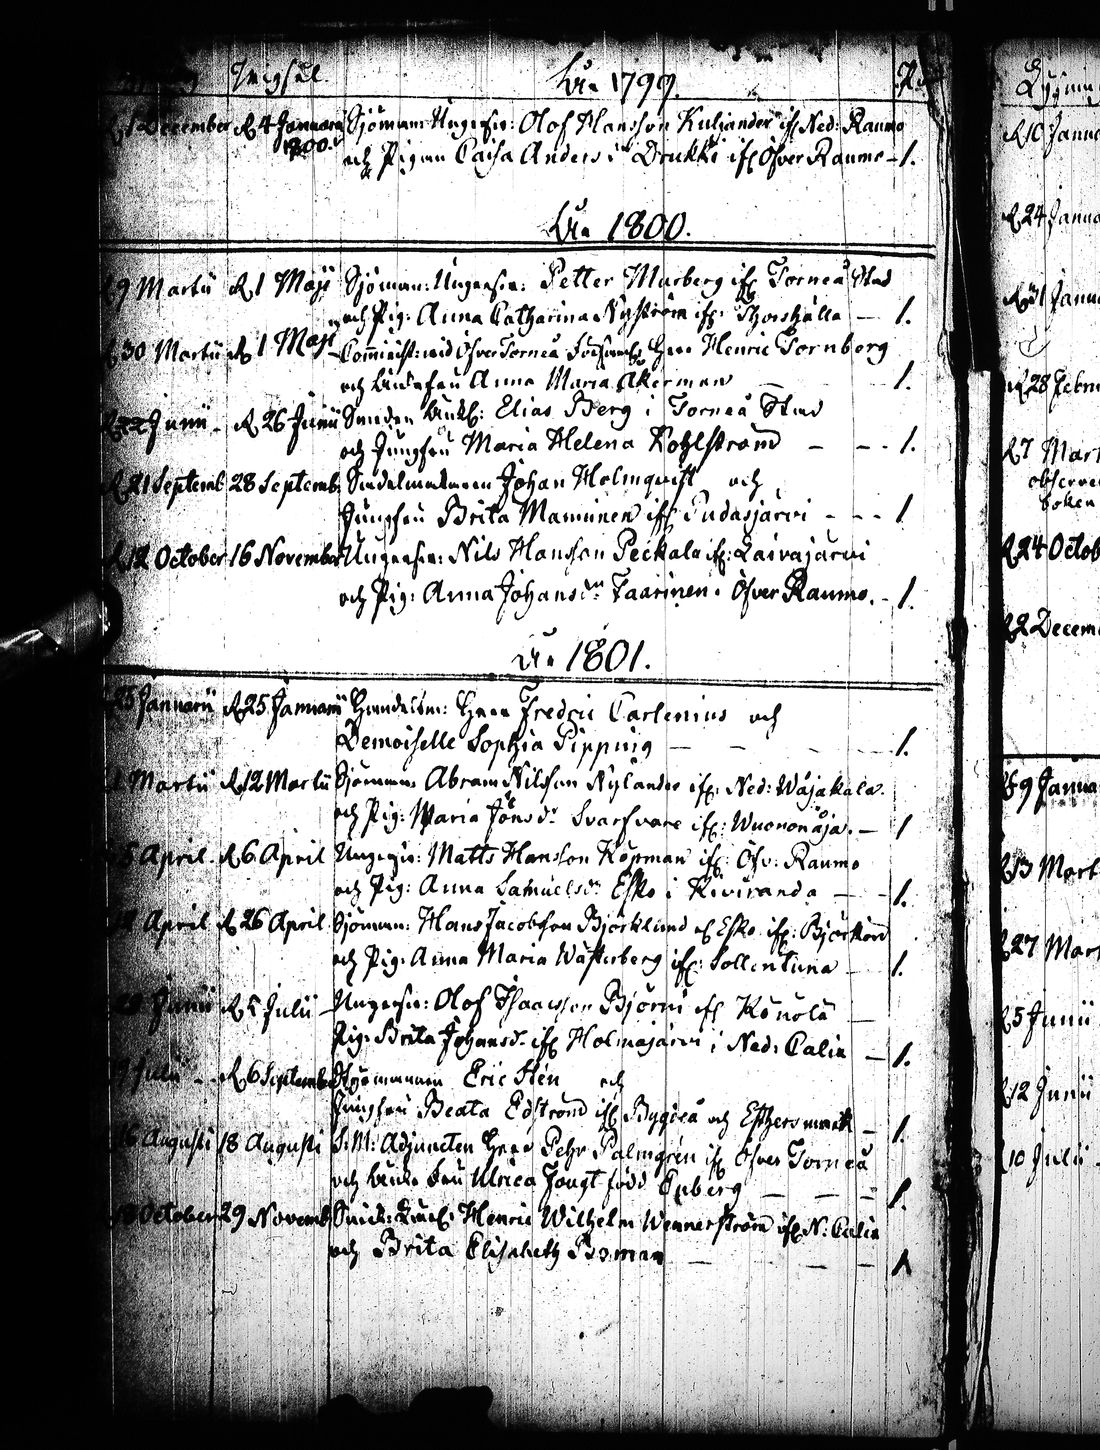 Vigsel. År 1799.
1 December d. 4 Januarii Sjöman: Ungersv: Olof Hansson Kuljander if: Ned: Raumo
1800. och Pigan Caisa Anders dr Drukki if: Öfver Raumo - 1.
År 1800.
9 Martii d. 1 Maji Sjöman: Ungersv: Petter Murberg if: Torneå Stad
och Pig: Anna Catharina Nyström if: Thorshälla - 1.
d. 30 Martii d. 1 Maji Comminist: vid Öfver Torneå Herr Henric Tornberg
och Anna Maria Åkerman - 1.
d. 22 Junii d. 26 Junii Elias Berg i Torneå Stad
och Jungfru Maria Helena Kohlström - - - 1.
d. 21 Septemb 28 Septemb. Sadelmakaren Johan Holmqvist och
Jungfru Brita Mamunen if: Pudasjärvi - - - 1
d. 12 October 16 November Ungersv: Nils Hansson Peckala if: Laivajärvi
och Pig: Anna Johans dr Taarinen i Öfver Raumo. - 1.
År 1801.
25 Januarii d. 25 Januarii Handelsm: Herr Fredric Carlenius och
Demoiselle Sophia Pipping - - - 1.
1 Martii d. 12 Martii Sjöman Abram Nilsson Nylander if: Ned: Wojakala.
och Pig: Maria Jöns dr Svarfvare if: Wuononoja. - 1
5 April. d. 6 April Ungersv: Matts Hansson Köpman if: Öfv: Raumo
och Pig: Anna Samuels dr Esko i Kiviranda - - 1.
12 April d. 26 April Sjöman: Hans Jacobsson Björklund el Esko if: Björkön
och Pig: Anna Maria Wästerberg if: Sollentuna - 1.
Junii d. 5 Julii - Ungersv: Olof Isaacsson Björni if: Könölä -
Pig: Brita Johans dr if: Holmajärvi i Ned: Calix - 1.
Julii - d. 6 September Eric Sten och
Jungfru Beata Edström if: Bygdeå och Esthersmark - 1.
16 Augusti 18 Augusti S: M: Adjuncten Herr Pehr Palmgren if: Öfver Torneå
och Fru Ulrica Fougt född Enberg - - - 1.
18 October 29 Novemb Henric Wilhelm Wennerström if: N: Calix
och Brita Elisabeth Boman - - - 1
d. 10 Janua
d. 24 Janua
d. 31 Janua
d. 28 Febru
d. 7 Mart
observe
boken
d. 24 Octob
d. 2 Decem
d. 9 Janua
d. 13 Mart
d. 27 Mart
d. 5 Junii
d. 12 Junii
10 Julii